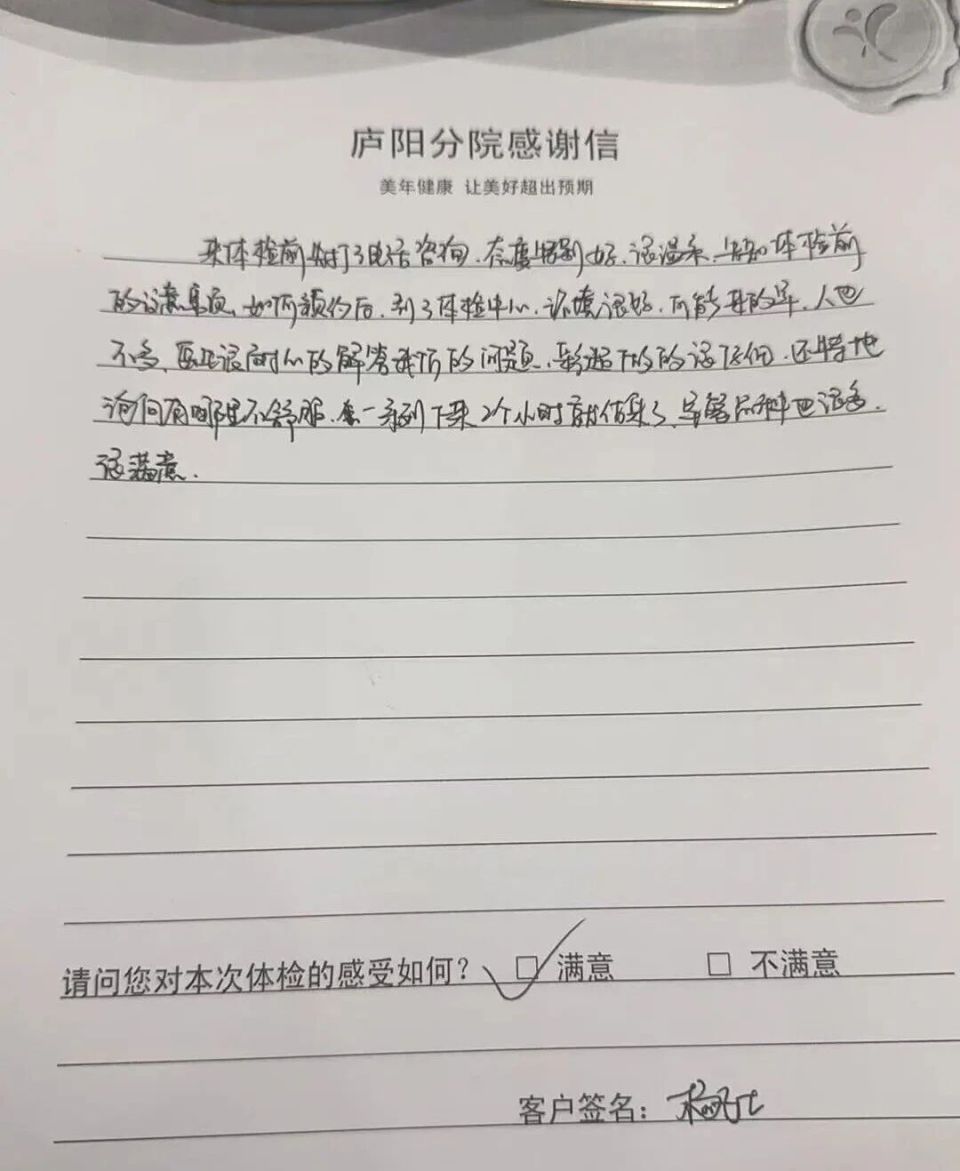 庐阳分院感谢信
美年健康 让美好超出预期
来体检前先打了电话咨询，态度特别好，很温柔，告知体检前
的注意事项，如何预约后，到了体检中心，环境很好，可能来的早，人也
不多，医生很耐心的解答我所有的问题，彩超做的很仔细，还特地
询问有哪里不舒服，一系列下来2个小时就结束了，早餐品种也很多，
很满意。
请问您对本次体检的感受如何？ 满意 不满意
客户签名：